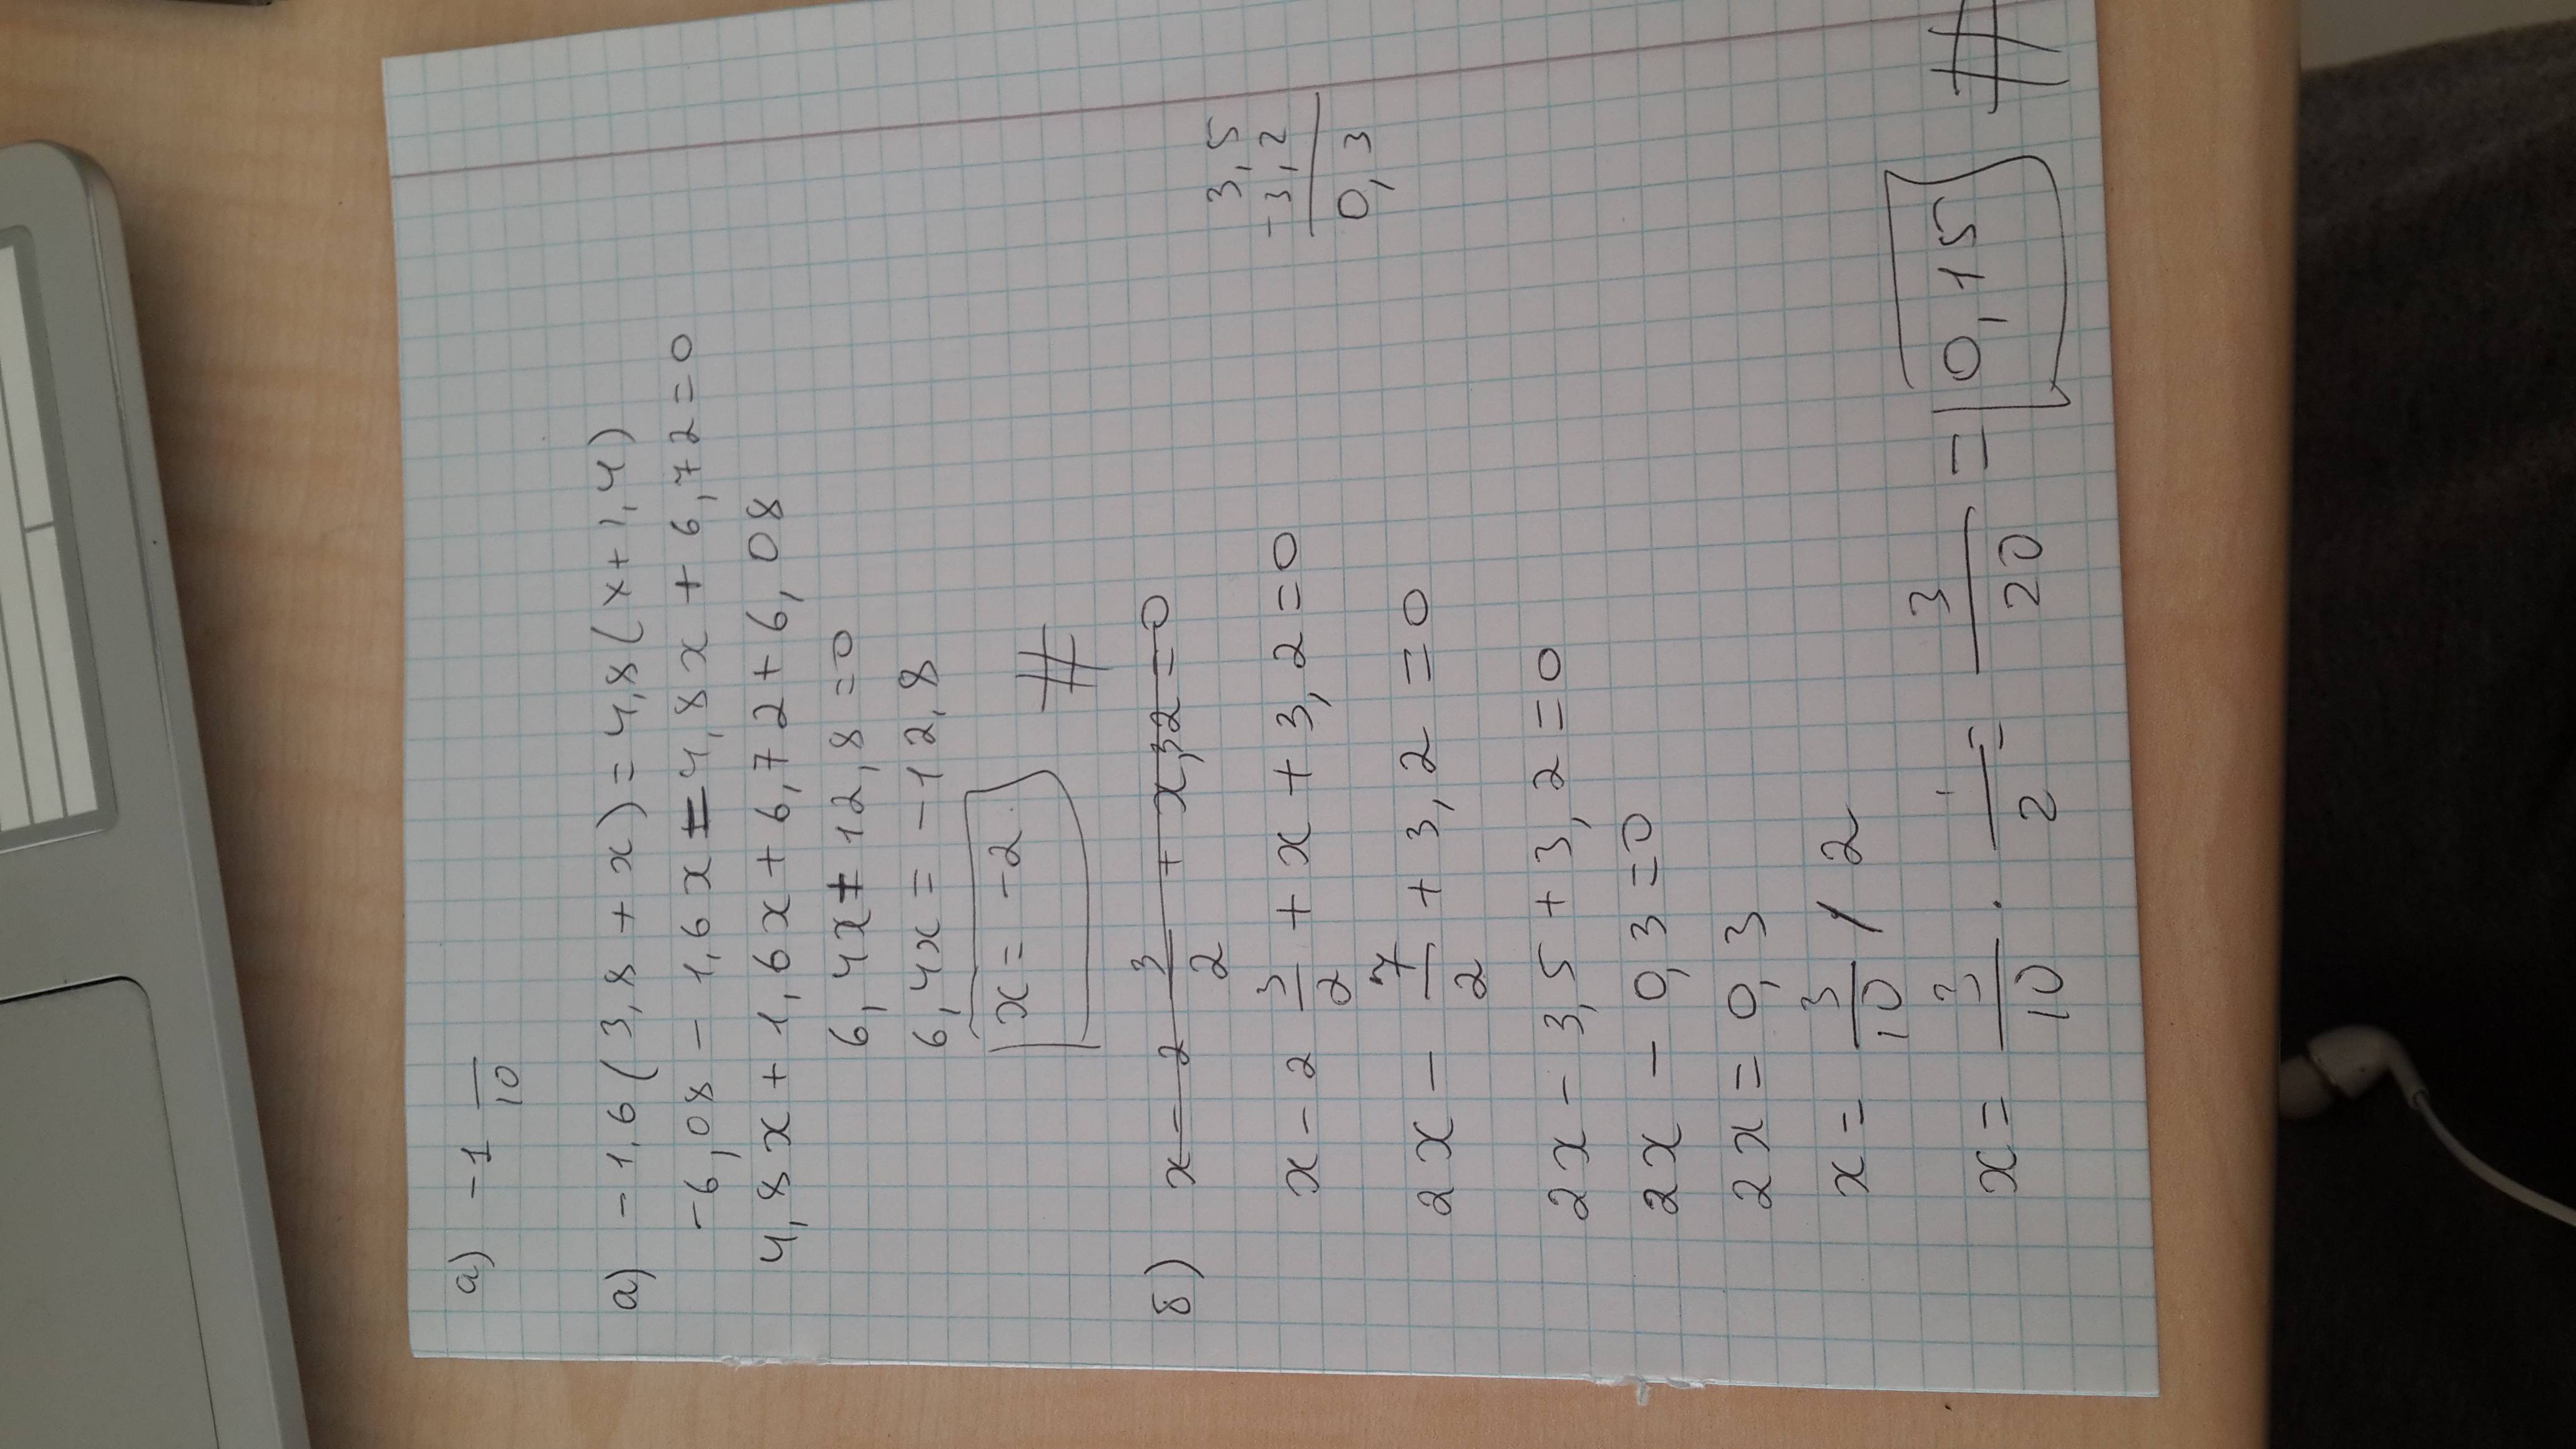 а) -1 —/10
а) -1,6(3,8+x)=4,8(x+1,4)
-6,08-1,6x=4,8x+6,72=0
4,8x+1,6x+6,72+6,08
6,4x+12,8=0
6,4x=-12,8
x=-2 #
б) x-2 3/2+x,32=0
3,5
x-2 3/2+x+3,2=0
-3,2
0,3
2x-7/2+3,2=0
2x-3,5+3,2=0
2x-0,3=0
2x=0,3
x=3/10 / 2
x=3/10 · 1/2 = 3/20 = 0,15 #